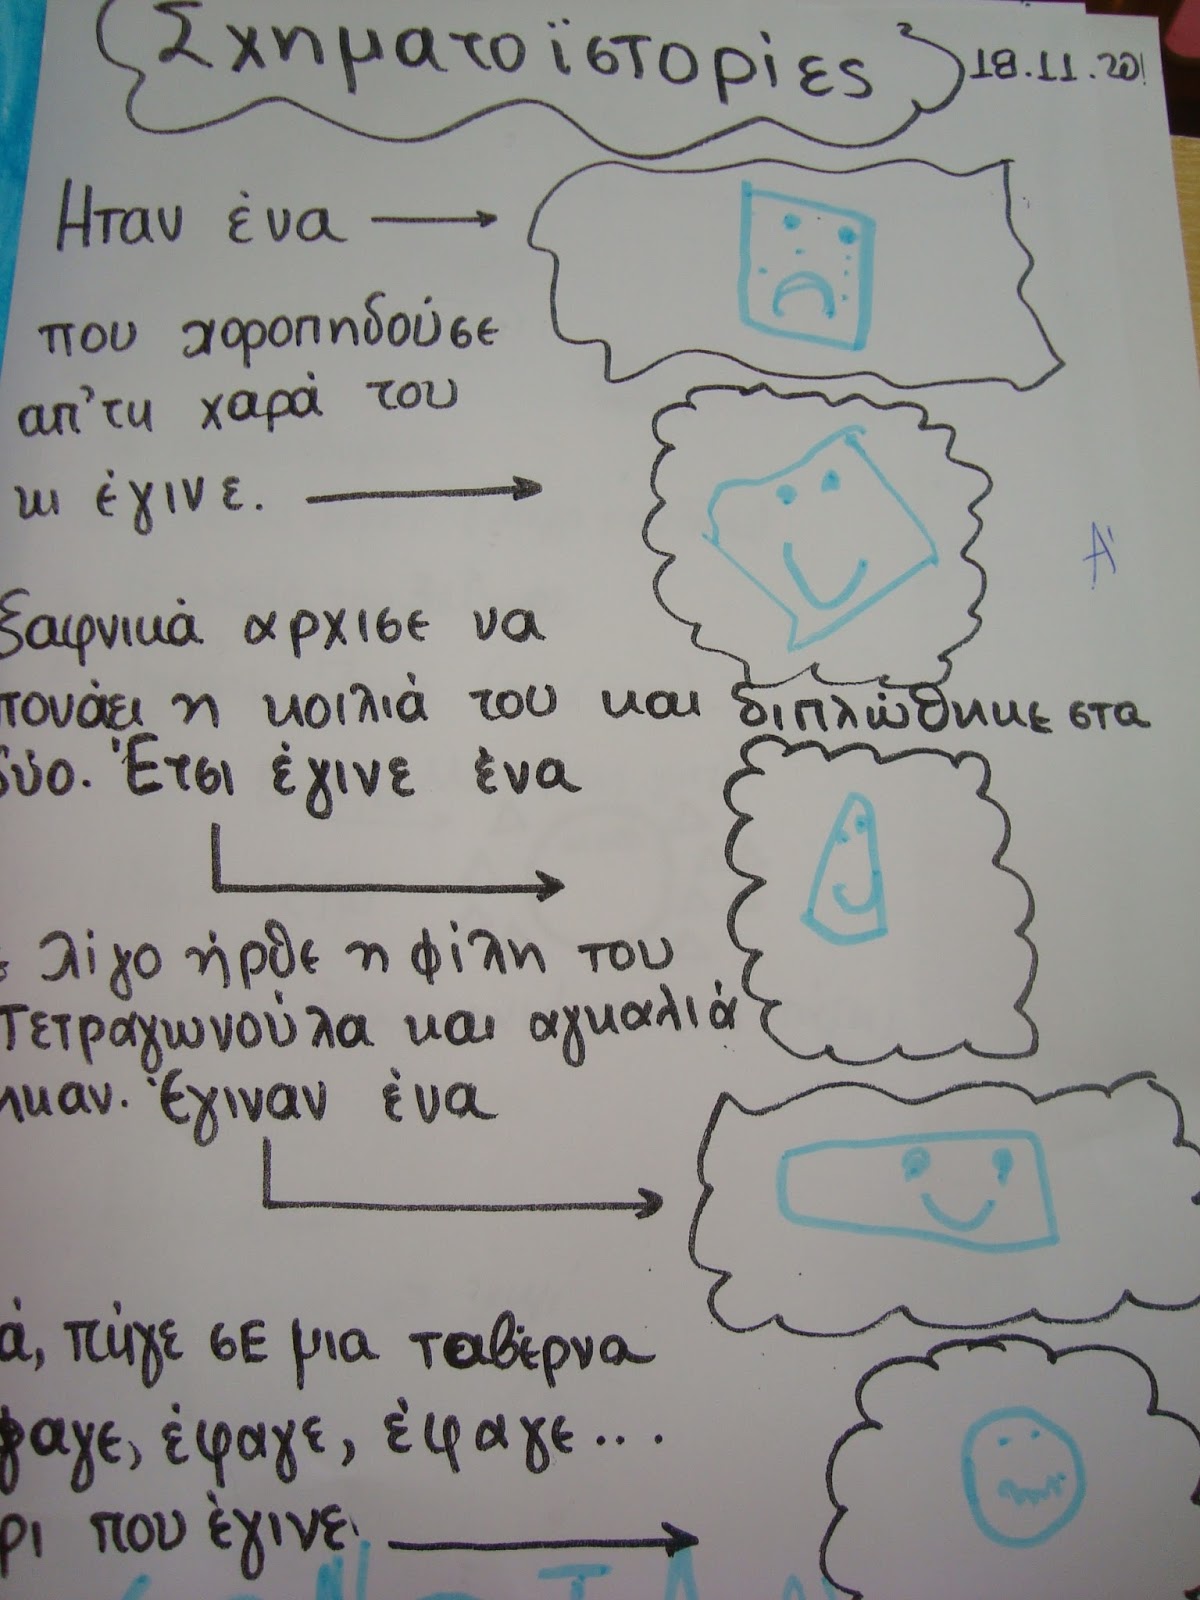 Σχηματοϊστορίες
18.11.20
Ηταν ένα
που χοροπηδούσε
απ'τη χαρά του
κι έγινε.
Α'
ξαφνικά αρχισε να
πονάει η κοιλιά του και διπλώθηκε στα
δύο. Έτσι έγινε ένα
λίγο ήρθε η φίλη του
Τετραγωνούλα και αγκαλιά
ηκαν. Έγιναν ένα
ά, πήγε σε μια ταβέρνα
φαγε, έφαγε, έφαγε...
ρι που έγινε